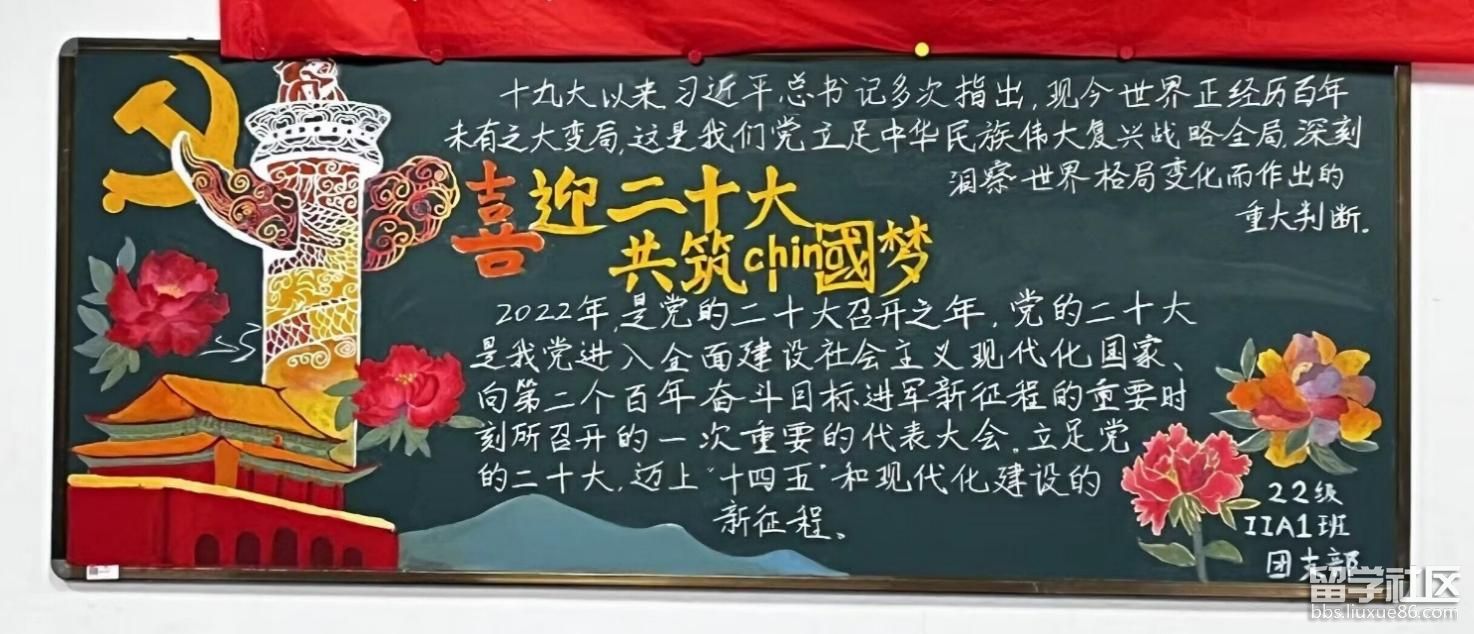 十九大以来习近平总书记多次指出,现今世界正经历百年
未有之大变局,这是我们党立足中华民族伟大复兴战略全局,深刻
洞察世界格局变化而作出的
重大判断.
喜迎二十大
共筑chin國梦
2022年,是党的二十大召开之年,党的二十大
是我党进入全面建设社会主义现代化国家、
向第二个百年奋斗目标进军新征程的重要时
刻所召开的一次重要的代表大会。立足党
的二十大,迈上“十四五”和现代化建设的
新征程。
22级
IIA1班
团支部
留学社区
bbs.liuxue86.com